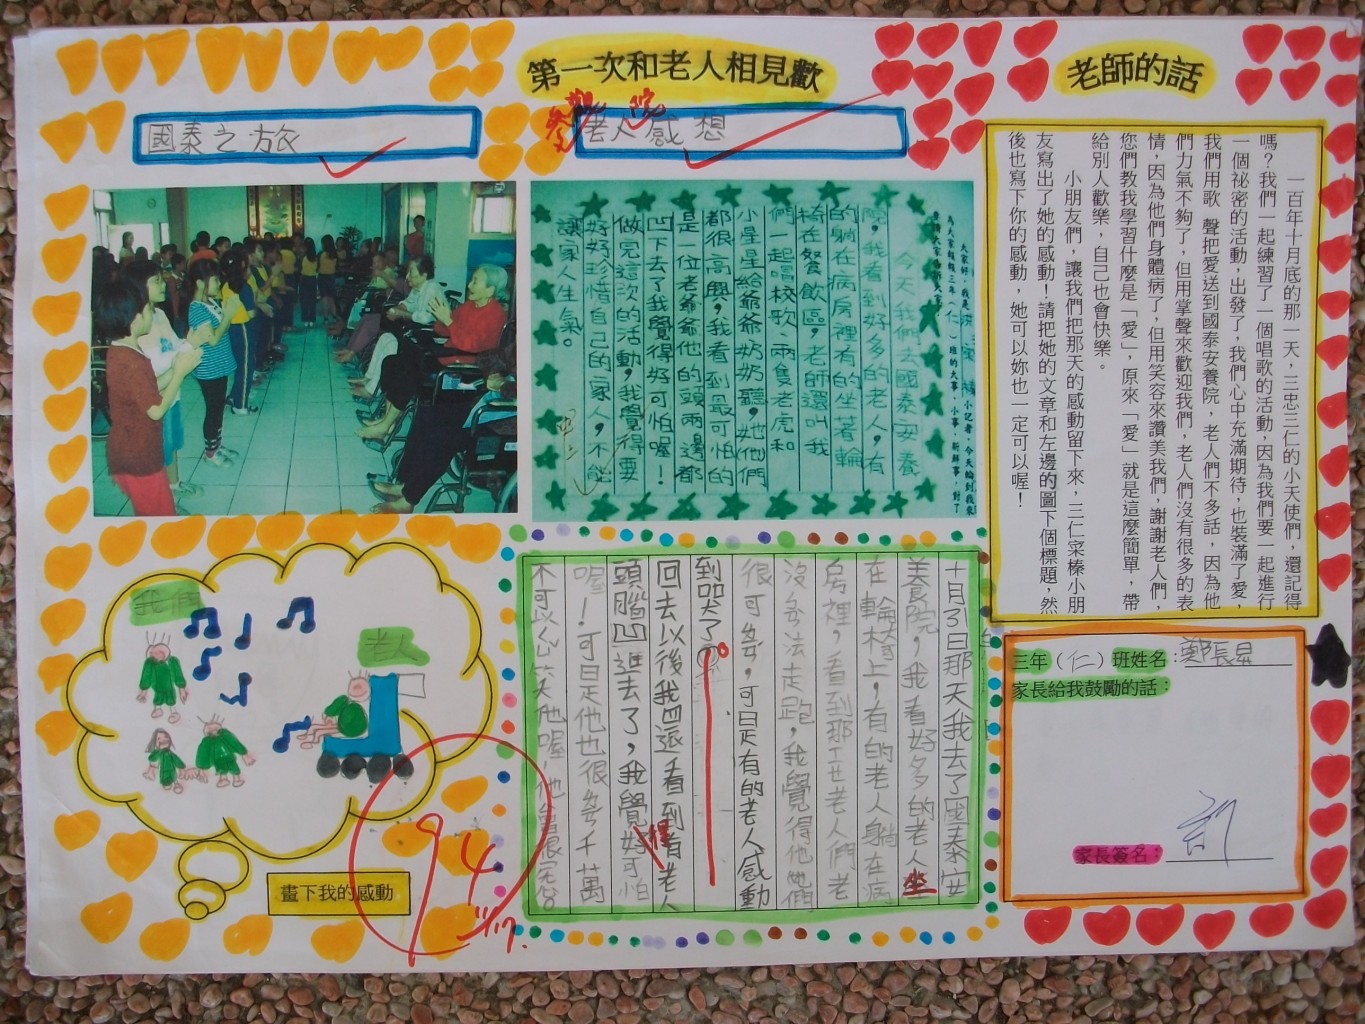 第一次和老人相見歡
老師的話
國泰之旅
參觀老人院感想
一百年十月底的那一天，三忠三仁的小天使們，還記得
嗎？我們一起練習了一個唱歌的活動，因為我們要一起進行
一個祕密的活動，出發了，我們心中充滿期待，也裝滿了愛，
我們用歌 聲把愛送到國泰安養院，老人們不多話，因為他
們力氣不夠了，但用掌聲來歡迎我們，老人們沒有很多的表
情，因為他們身體病了，但用笑容來讚美我們，謝謝老人們，
您們教我學習什麼是「愛」，原來「愛」就是這麼簡單，帶
給別人歡樂，自己也會快樂。
小朋友們，讓我們把那天的感動留下來，三仁菜榛小朋
友寫出了她的感動！請把她的文章和左邊的圖下個標題，然
後也寫下你的感動，她可以妳也一定可以喔！
大家好，我是 小記者，今天輪到我來
為大家報報三年仁班的大事、小事、新鮮事，
今天我們去國泰安養
院，我看到好多的老人，有
的躺在病房裡有的坐著輪
椅在餐飲區，老師還叫我
們一起唱校歌兩隻老虎和
小星星給爺爺奶奶聽，她們
都很高興，我看到最可怕的
是一位老爺爺他的頭兩邊都
凹下去了我覺得好可怕喔！
做完這次的活動，我覺得要
好好珍惜自己的家人，不能
讓家人生氣。
十月31日那天我去了國泰安
養院，我看好多的老人坐
在輪椅上，有的老人躺在病
房裡，看到那些老人們老
沒辦法走跑，我覺得他們
很可憐，可是有的老人感動
到哭了。
回去以後我還看到有老人
頭腦凹進去了，我覺得好可怕
喔！可是他也很可憐千萬
不可以笑他喔，他會很
我們
老人
畫下我的感動
94
11/7
三年（仁）班姓名：鄭長昇
家長給我鼓勵的話：
家長簽名：